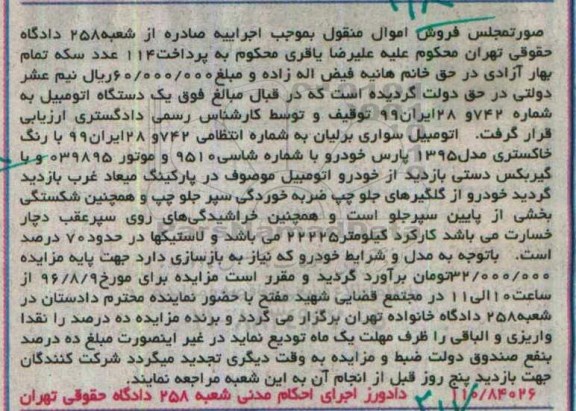 صورتمجلس فروش اموال منقول بموجب اجراییه صادره از شعبه۲۵۸ دادگاه
حقوقی تهران محکوم علیه علیرضا یاقری محکوم به پرداخت۱۱۴ عدد سکه تمام
بهار آزادی در حق خانم هانیه فیض اله زاده و مبلغ۶۰/۰۰۰/۰۰۰ریال نیم عشر
دولتی در حق دولت گردیده است که در قبال مبالغ فوق یک دستگاه اتومبیل به
شماره ۷۴۲و ۲۸ایران۹۹ توقیف و توسط کارشناس رسمی دادگستری ارزیابی
قرار گرفت. اتومبیل سواری برلیان به شماره انتظامی ۷۴۲و ۲۸ایران۹۹ با رنگ
خاکستری مدل۱۳۹۵ پارس خودرو با شماره شاسی۹۵۱۰ و موتور ۰۳۹۸۹۵ و با
گیربکس دستی بازدید از خودرو اتومبیل موصوف در پارکینگ میعاد غرب بازدید
گردید خودرو از گلگیرهای جلو چپ ضربه خوردگی سپر جلو چپ و همچنین شکستگی
بخشی از پایین سپرجلو است و همچنین خراشیدگی‌های روی سپرعقب دچار
خسارت می باشد کارکرد کیلومتر۲۲۲۲۵ می باشد و لاستیکها در حدود۷۰ درصد
است. باتوجه به مدل و شرایط خودرو که نیاز به بازسازی دارد جهت پایه مزایده
۳۲/۰۰۰/۰۰۰تومان برآورد گردید و مقرر است مزایده برای مورخ۹۶/۸/۹ از
ساعت۱۰الی۱۱ در مجتمع قضایی شهید مفتح با حضور نماینده محترم دادستان در
شعبه۲۵۸ دادگاه خانواده تهران برگزار می گردد و برنده مزایده ده درصد را نقدا
واریزی و الباقی را ظرف مهلت یک ماه تودیع نماید در غیر اینصورت مبلغ ده درصد
بنفع صندوق دولت ضبط و مزایده به وقت دیگری تجدید میگردد شرکت کنندگان
جهت بازدید پنج روز قبل از انجام آن به این شعبه مراجعه نمایند.
۱۱۰/۸۴۰۲۶ دادورز اجرای احکام مدنی شعبه ۲۵۸ دادگاه حقوقی تهران